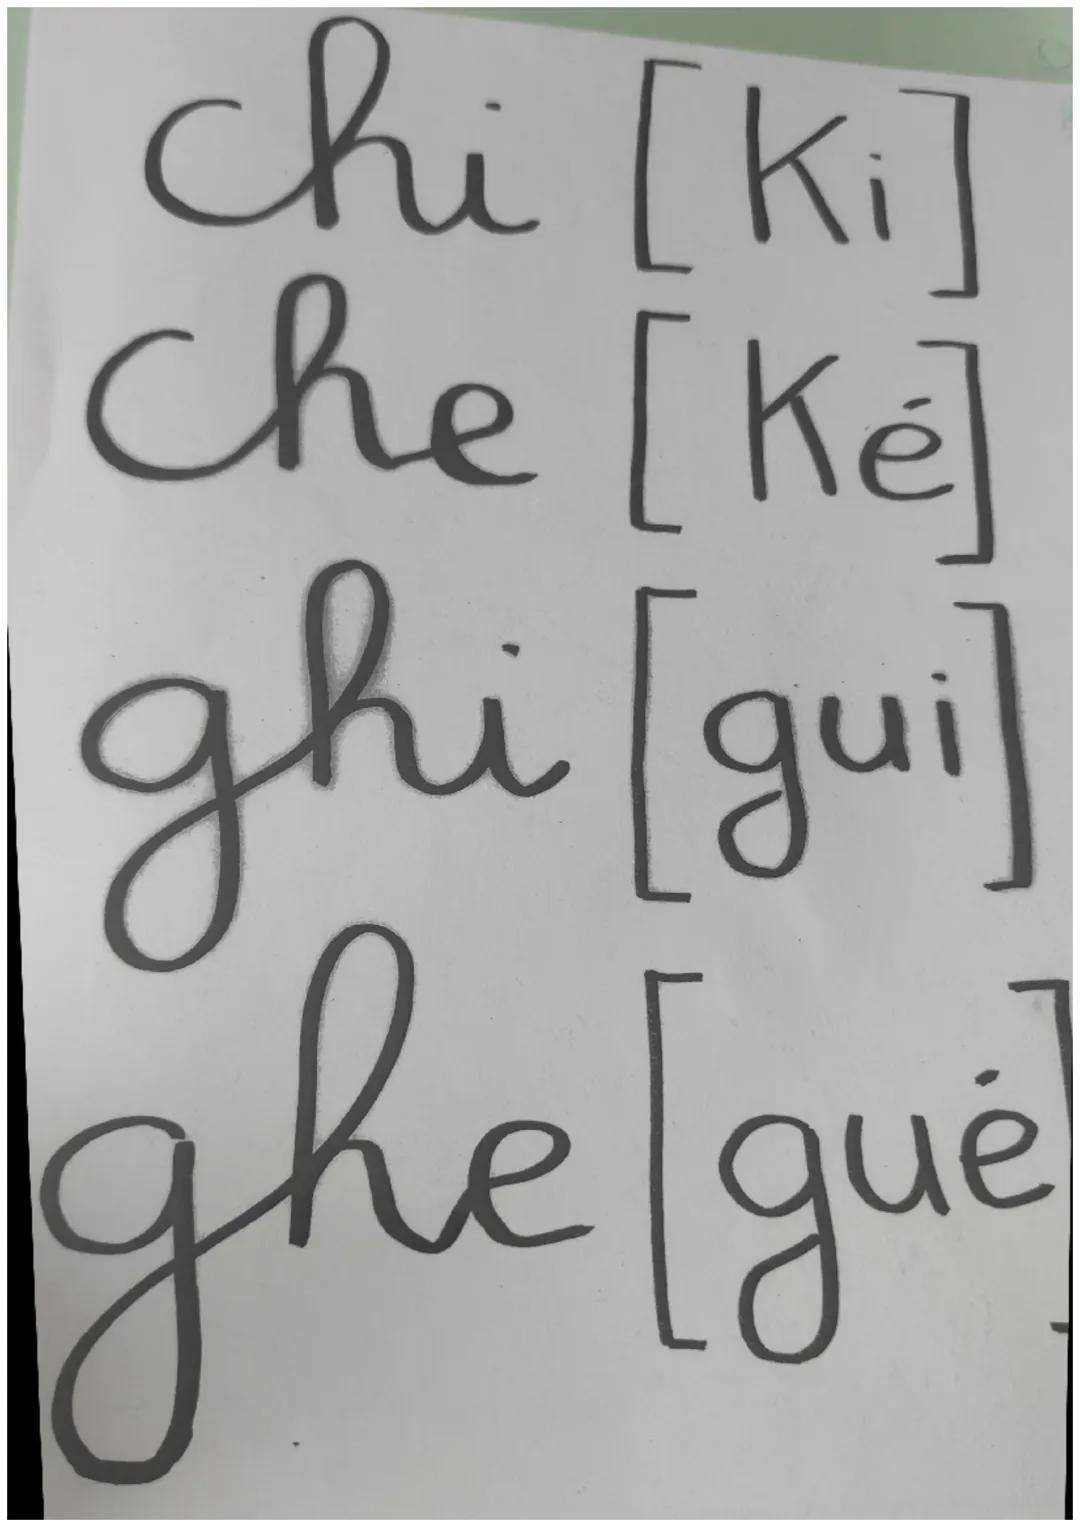 chi [Ki]
che [Ké]
ghi [gui]
ghe [gué]